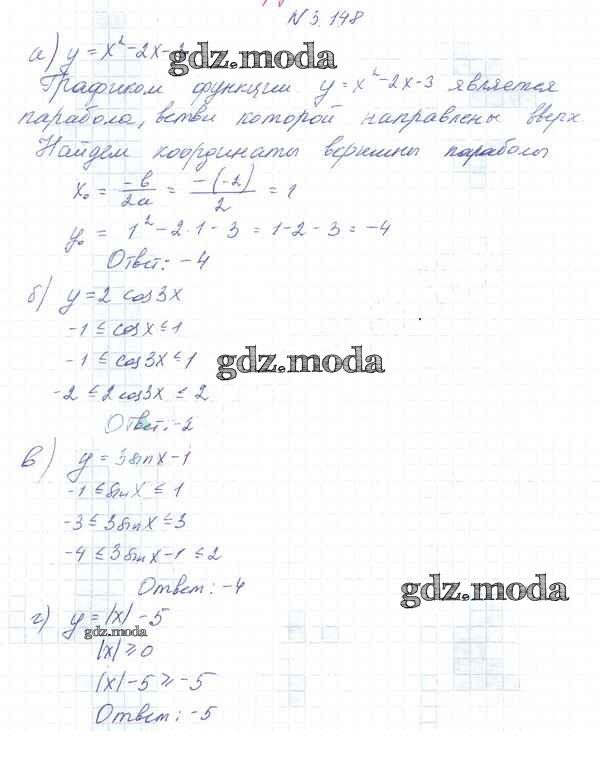 N 5.148
а) y = x² - 2x - 3
gdz.moda
Графиком функции y = x² - 2x - 3 является
парабола, ветви которой направлены вверх
Найдем координаты вершины параболы
x₀ = -b/2a = -(-2)/2 = 1
y₀ = 1² - 2·1 - 3 = 1 - 2 - 3 = -4
Ответ: -4
б) y = 2 cos3x
-1 ≤ cosx ≤ 1
-1 ≤ cos3x ≤ 1
gdz.moda
-2 ≤ 2cos3x ≤ 2
Ответ: -2
в) y = 3sinx - 1
-1 ≤ sinx ≤ 1
-3 ≤ 3sinx ≤ 3
-4 ≤ 3sinx - 1 ≤ 2
Ответ: -4
gdz.moda
г) y = |x| - 5
gdz.moda
|x| ≥ 0
|x| - 5 ≥ -5
Ответ: -5